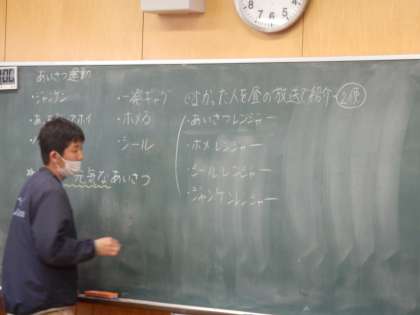 あいさつ運動
・ジャンケン
・一発ギャグ
・ホメる
・シール
元気なあいさつ
よかった人を昼の放送で紹介
・あいさつレンジャー
・ホメレンジャー
・シールレンジャー
・ジャンケンレンジャー
8 7 6 5 4